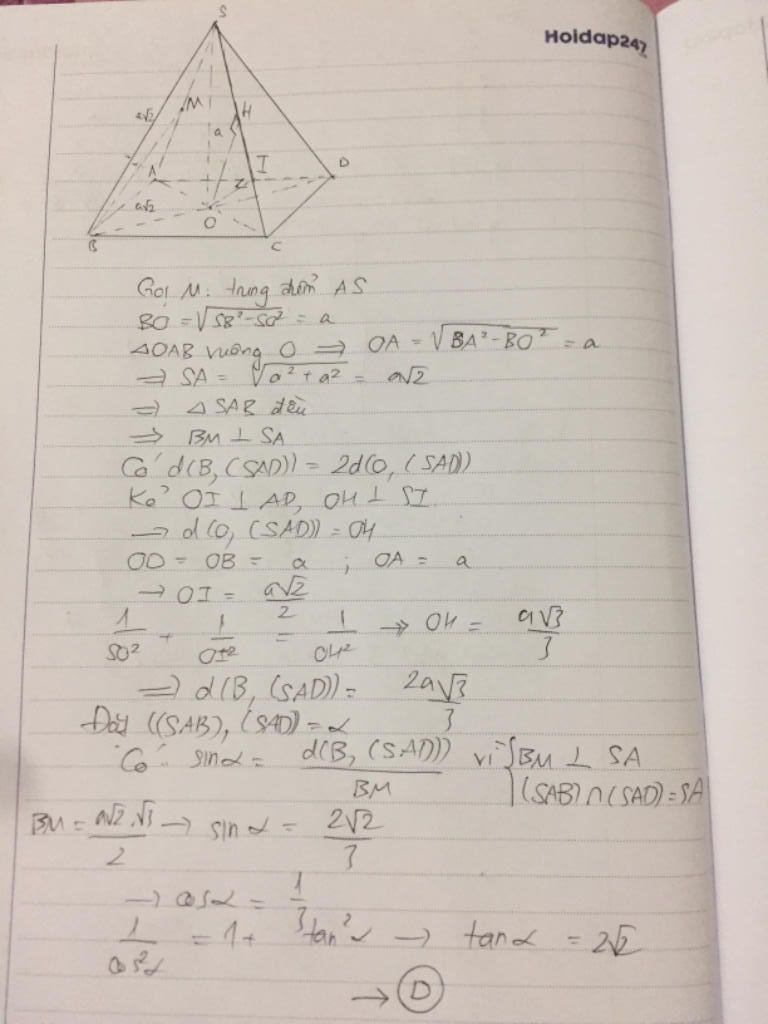 Hoidap247
S
a√2
M
H
a
A
I
D
a√2
O
B
C
Gọi M: trung điểm AS
BO = √SB² - SO² = a
△OAB vuông O ⇒ OA = √BA² - BO² = a
⇒ SA = √a² + a² = a√2
⇒ △ SAB đều
⇒ BM ⊥ SA
Có d(B, (SAD)) = 2d(O, (SAD))
Kẻ OI ⊥ AD, OH ⊥ SI
→ d(O, (SAD)) = OH
OD = OB = a ; OA = a
→ OI = a√2/2
1/SO² + 1/OI² = 1/OH² → OH = a√3/3
⇒ d(B, (SAD)) = 2a√3/3
Đặt ((SAB), (SAD)) = α
Có: sinα = d(B, (SAD))/BM vì {BM ⊥ SA
(SAB) ∩ (SAD) = SA
BM = a√2.√3/2 → sin α = 2√2/3
→ cosα = 1/3
1/cos²α = 1 + tan²α → tanα = 2√2
→ D